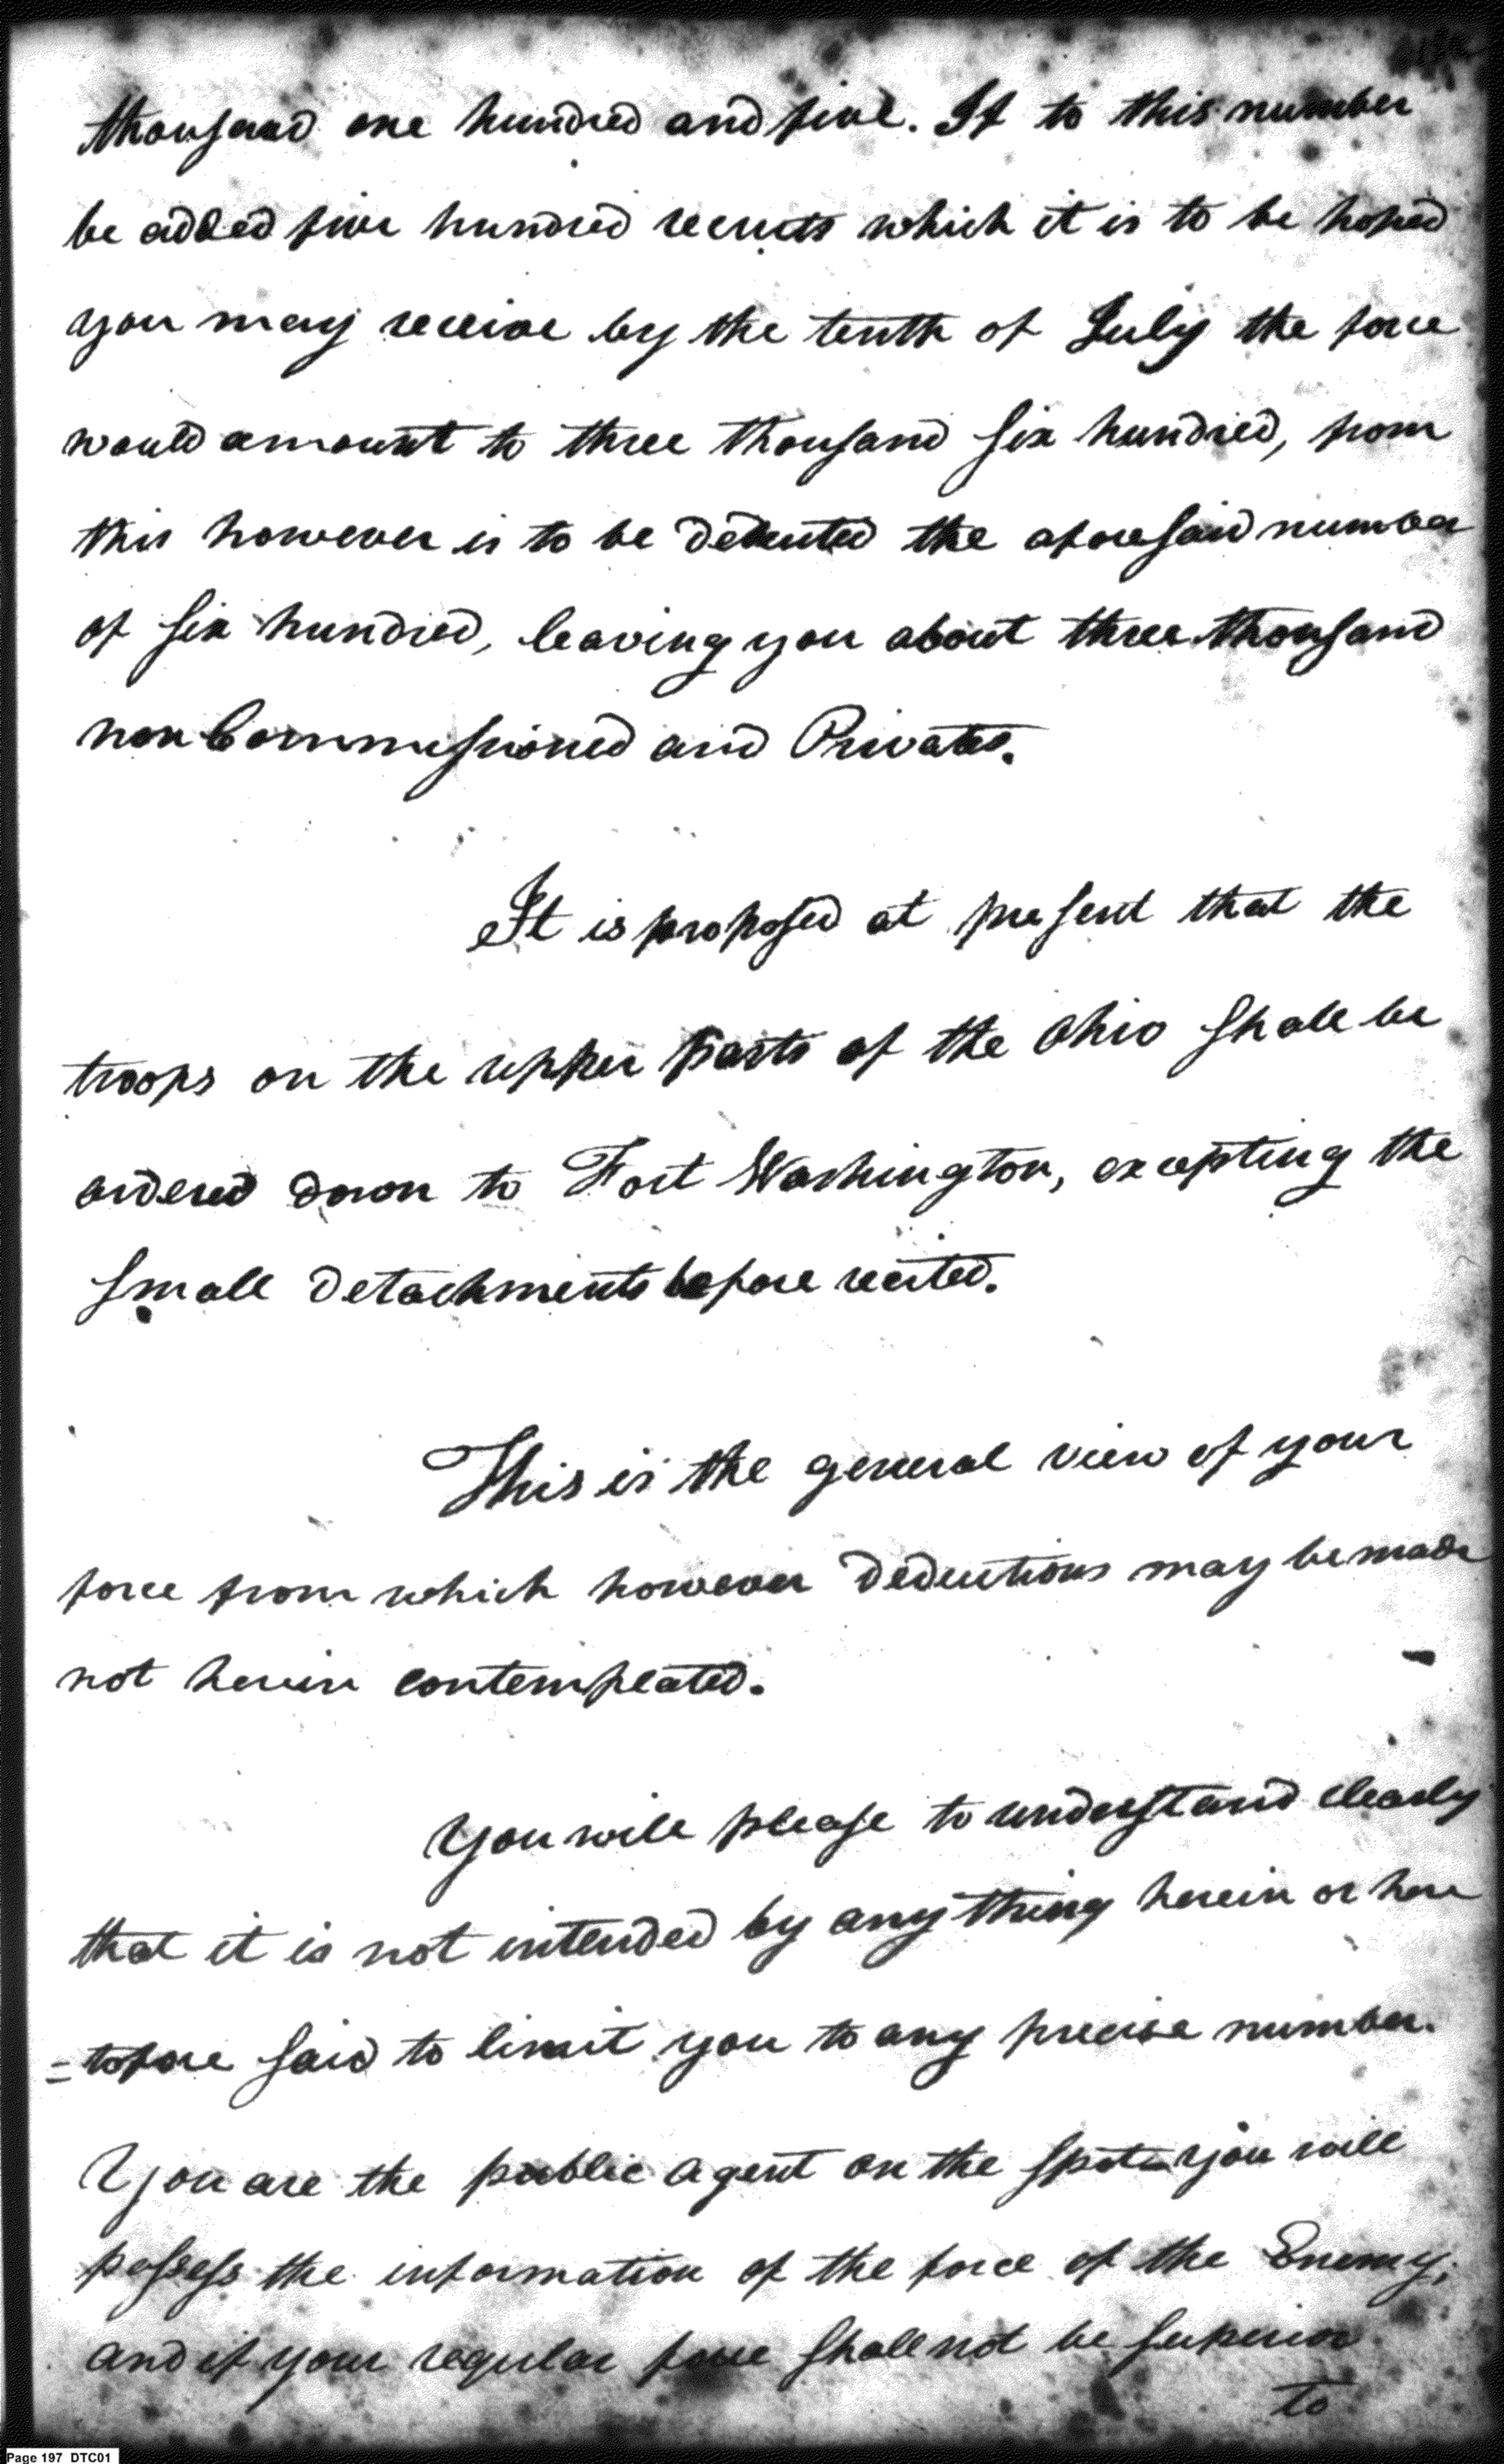 thousand one hundred and five. If to this number
be added five hundred recruits which it is to be hoped
you may receive by the tenth of July the force
would amount to three thousand six hundred, from
this however is to be deducted the aforesaid number
of six hundred, leaving you about three thousand
non Commissioned and Privates.
It is proposed at present that the
troops on the upper parts of the Ohio shall be
ordered down to Fort Washington, excepting the
small detachments before recited.
This is the general view of your
force from which however deductions may be made
not herein contemplated.
You will please to understand clearly
that it is not intended by any thing herein or here
=tofore said to limit you to any precise number.
You are the public agent on the spot you will
possess the information of the force of the Enemy;
and if your regular force shall not be superior
to
Page 197 DTC01